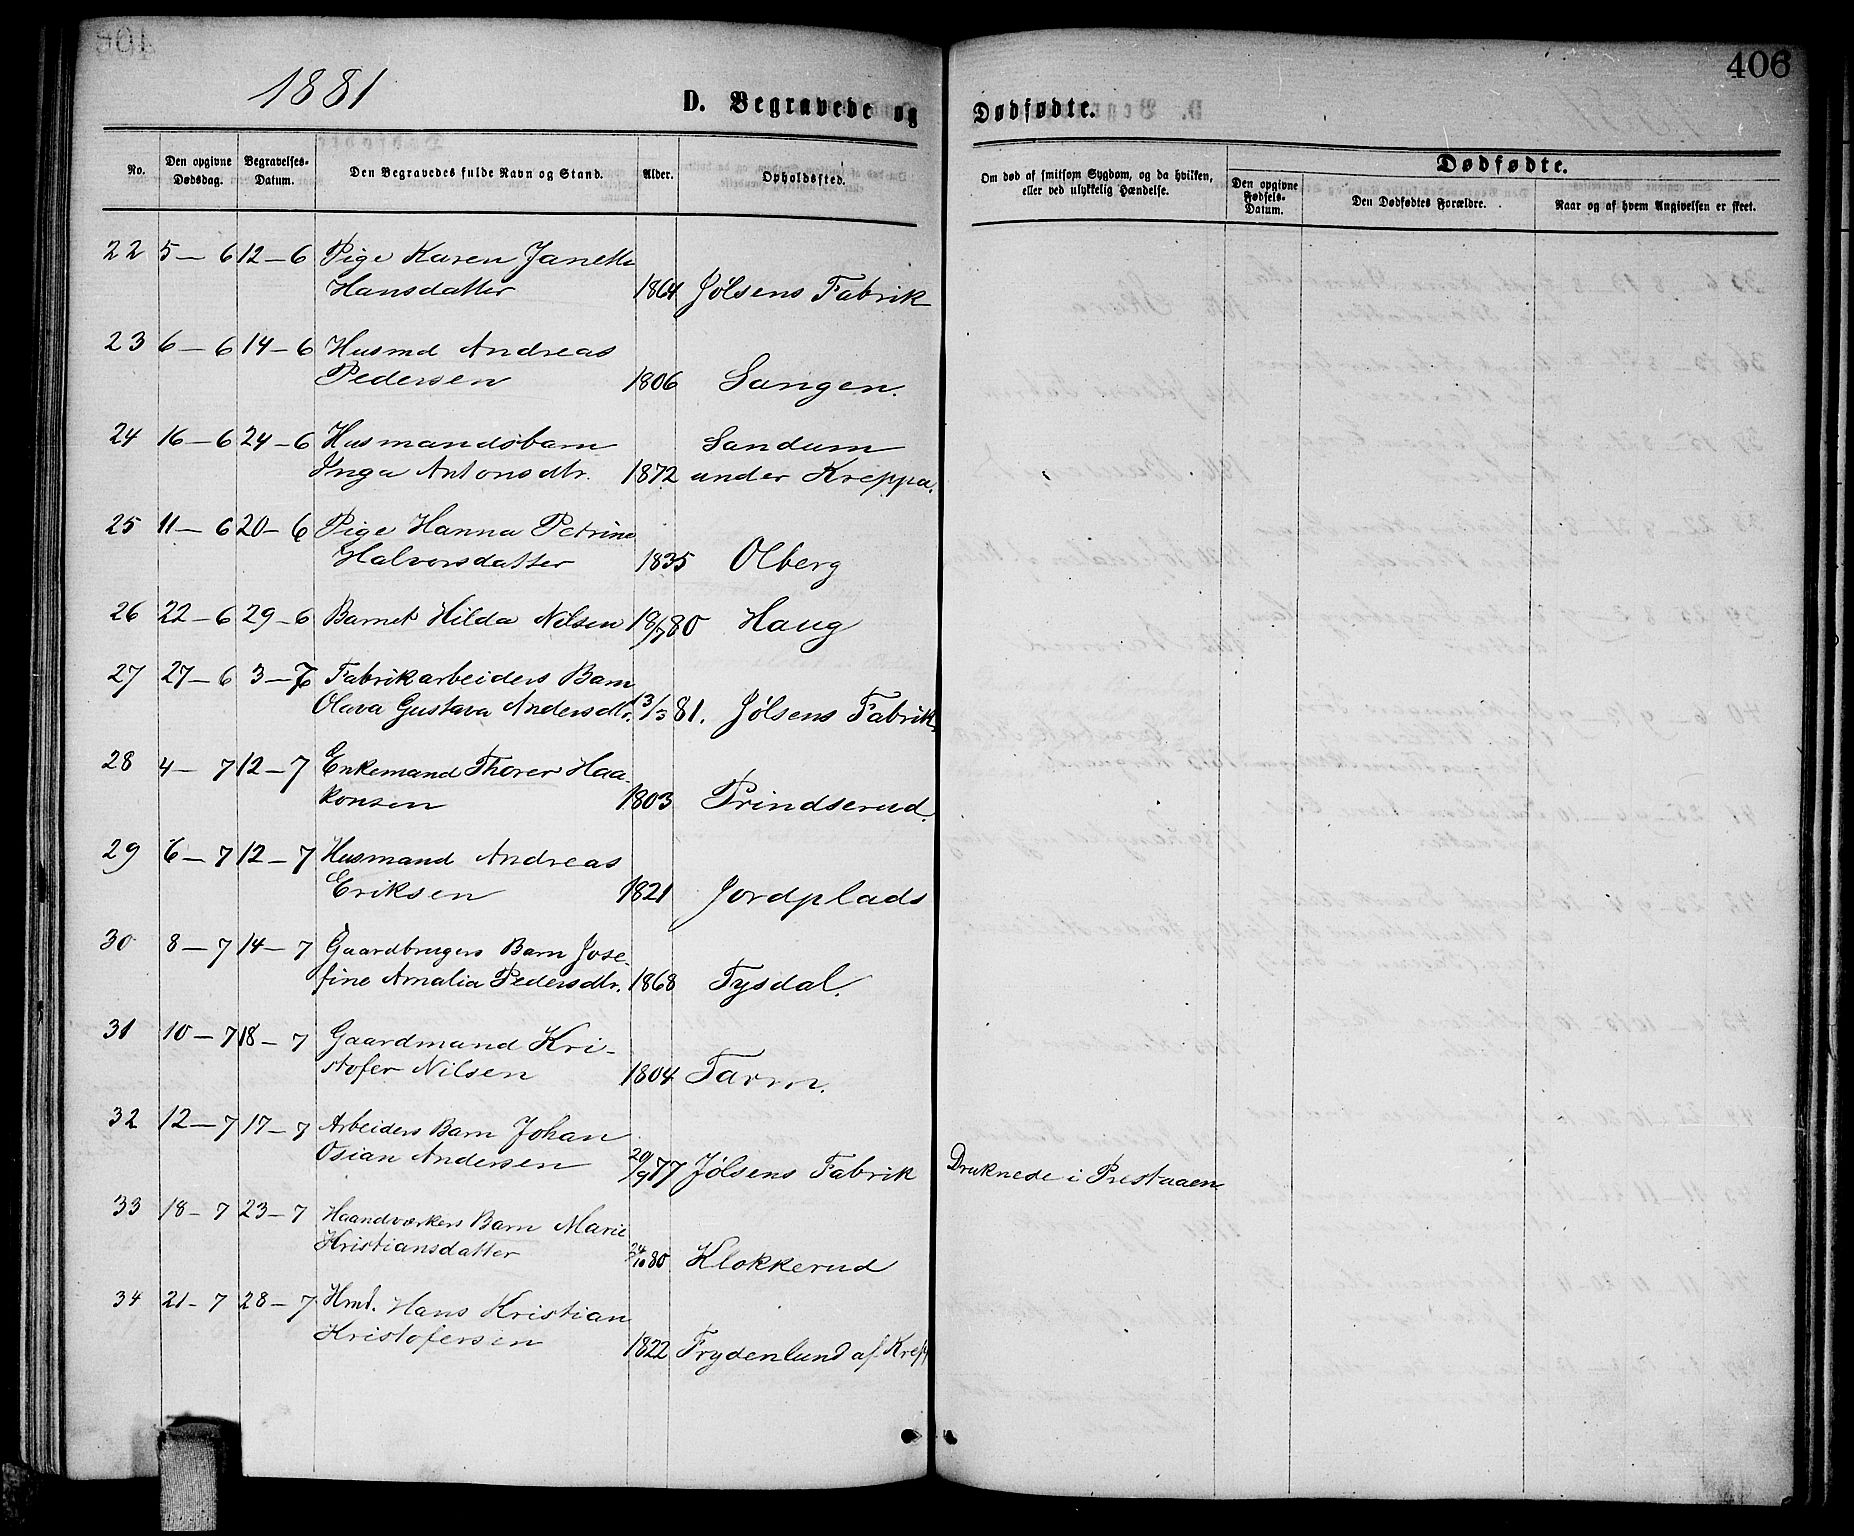 406
1881
D. Begravede og Dødfødte.
No. | Den opgivne Dødsdag. | Begravelses-Datum. | Den Begravedes fulde Navn og Stand. | Alder. | Opholdssted. | Om død af smitsom Sygdom, og da hvilken, eller ved ulykkelig Hændelse. | Dødfødte. | Den opgivne Fødsels-Datum. | Den Dødfødtes Forældre. | Naar og af hvem Angivelsen er skeet.
22 5–6 12–6 Pige Karen Janette
Hansdatter 1864 Jølsens Fabrik
23 6–6 14–6 Husmd Andreas
Pedersen 1806 Sangen.
24 16–6 24–6 Husmandsbarn Sandum
Inga Antonsdtr. 1872 under Kreppa.
25 11–6 20–6 Pige Hanna Petrine
Halvorsdatter 1835 Olberg
26 22–6 29–6 Barnet Hilda Nilsen 18/7 80 Haug
27 27–6 3–7 Fabrikarbeiders Barn
Olava Gustava Andersdtr. 13/3 81. Jølsens Fabrik.
28 4–7 12–7 Enkemand Thorer Haa-
konsen 1803 Prindserud.
29 6–7 12–7 Husmand Andreas
Eriksen 1821 Jordplads
30 8–7 14–7 Gaardbrugers Barn Jose-
fine Amalia Pedersdtr. 1868 Tysdal.
31 10–7 18–7 Gaardmand Kri-
stofer Nilsen 1804 Tarm.
32 12–7 17–7 Arbeiders Barn Johan
Osian Andersen 29/9 77 Jølsens Fabrik Druknede i Prestaaen
33 18–7 23–7 Haandværkers Barn Marie
Kristiansdatter 24/10 80 Klokkerud
34 21–7 28–7 Hmd. Hans Kristian
Kristofersen 1822 Frydenlund af Krep